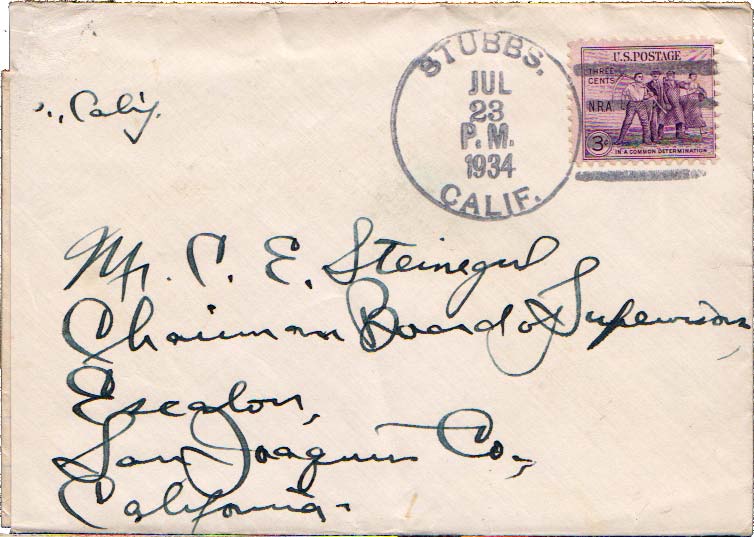 STUBBS,
JUL
23
P.M.
1934
CALIF.
U.S. POSTAGE
THREE CENTS
NRA
3¢
IN A COMMON DETERMINATION
Calif.
Mr. C. E. Steinegul
Chairman Board of Supervisors
Escalon,
San Joaquin Co.,
California-